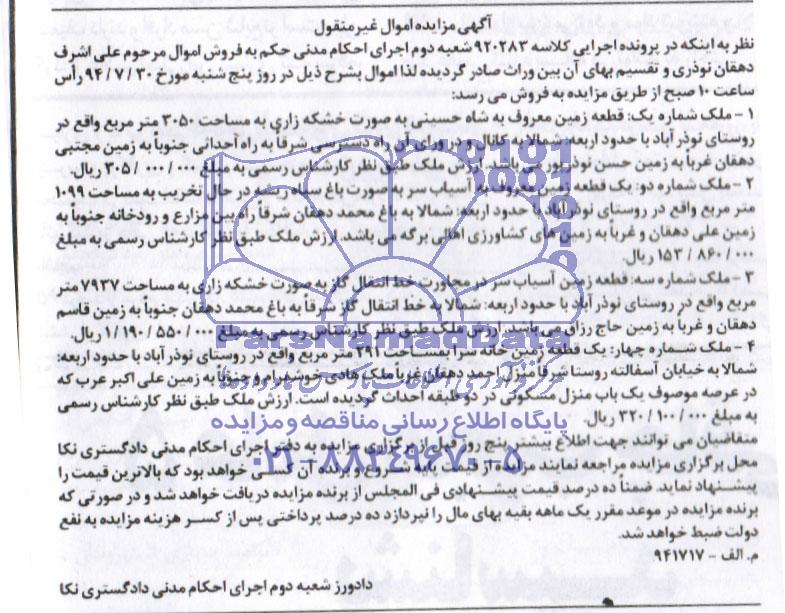 آگهی مزایده اموال غیرمنقول
نظر به اینکه در پرونده اجرایی کلاسه ۹۲۰۲۸۳ شعبه دوم اجرای احکام مدنی حکم به فروش اموال مرحوم علی اشرف
دهقان نوذری و تقسیم بهای آن بین وراث صادر گردیده لذا اموال بشرح ذیل در روز پنج شنبه مورخ ۹۴/۷/۳۰ رأس
ساعت ۱۰ صبح از طریق مزایده به فروش می رسد:
۱ – ملک شماره یک: قطعه زمین معروف به شاه حسینی به صورت خشکه زاری به مساحت ۳۰۵۰ متر مربع واقع در
روستای نوذر آباد با حدود اربعه: شمالا به کانال و در ورای آن راه دسترسی شرقاً به راه احداثی جنوباً به زمین مجتبی
دهقان غرباً به زمین حسن نوذر پور می باشد. ارزش ملک طبق نظر کارشناس رسمی به مبلغ ۳۰۵/۰۰۰/۰۰۰ ریال.
۲ – ملک شماره دو: یک قطعه زمین معروف به آسیاب سر به صورت باغ سیاه ریشه در حال تخریب به مساحت ۱۰۹۹
متر مربع واقع در روستای نوذر آباد با حدود اربعه: شمالا به باغ محمد دهقان شرقاً راه بین مزارع و رودخانه جنوباً به
زمین علی دهقان و غرباً به زمین های کشاورزی اهالی برگه می باشد. ارزش ملک طبق نظر کارشناس رسمی به مبلغ
۱۵۳/۸۶۰/۰۰۰ ریال.
۳ – ملک شماره سه: قطعه زمین آسیاب سر در مجاورت خط انتقال گاز به صورت خشکه زاری به مساحت ۷۹۳۷ متر
مربع واقع در روستای نوذر آباد با حدود اربعه: شمالا به خط انتقال گاز شرقاً به باغ محمد دهقان جنوباً به زمین قاسم
دهقان و غرباً به زمین حاج رزاق می باشد. ارزش ملک طبق نظر کارشناس رسمی به مبلغ ۱/۱۹۰/۵۵۰/۰۰۰ ریال.
۴ – ملک شماره چهار: یک قطعه زمین خانه سرا بمساحت ۲۹۱ متر مربع واقع در روستای نوذر آباد با حدود اربعه:
شمالا به خیابان آسفالته روستا شرقاً منزل احمد دهقان غرباً ملک هادی خوشفرام و جنوباً به زمین علی اکبر عرب که
در عرصه موصوف یک باب منزل مسکونی در دو طبقه احداث گردیده است. ارزش ملک طبق نظر کارشناس رسمی
به مبلغ ۳۲۰/۱۰۰/۰۰۰ ریال.
متقاضیان می توانند جهت اطلاع بیشتر پنج روز قبل از برگزاری مزایده به دفتر اجرای احکام مدنی دادگستری نکا
محل برگزاری مزایده مراجعه نمایند مزایده از قیمت پایه شروع و برنده آن کسی خواهد بود که بالاترین قیمت را
پیشنهاد نماید. ضمناً ده درصد قیمت پیشنهادی فی المجلس از برنده مزایده دریافت خواهد شد و در صورتی که
برنده مزایده در موعد مقرر یک ماهه بقیه بهای مال را نپردازد ده درصد پرداختی پس از کسر هزینه مزایده به نفع
دولت ضبط خواهد شد.
م. الف – ۹۴۱۷۱۷
دادورز شعبه دوم اجرای احکام مدنی دادگستری نکا
ParsNamadData
پایگاه اطلاع رسانی مناقصه و مزایده
۰۲۱-۸۸۳۴۹۶۷۰-۵